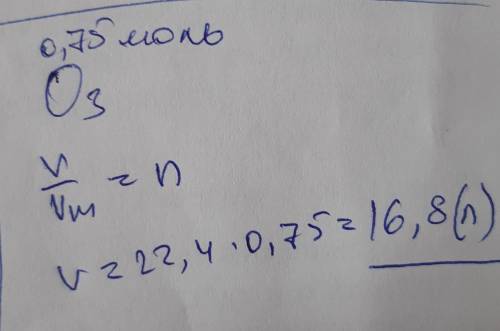 0,75 моль
O3
V/Vm = n
V = 22,4 · 0,75 = 16,8 (л)